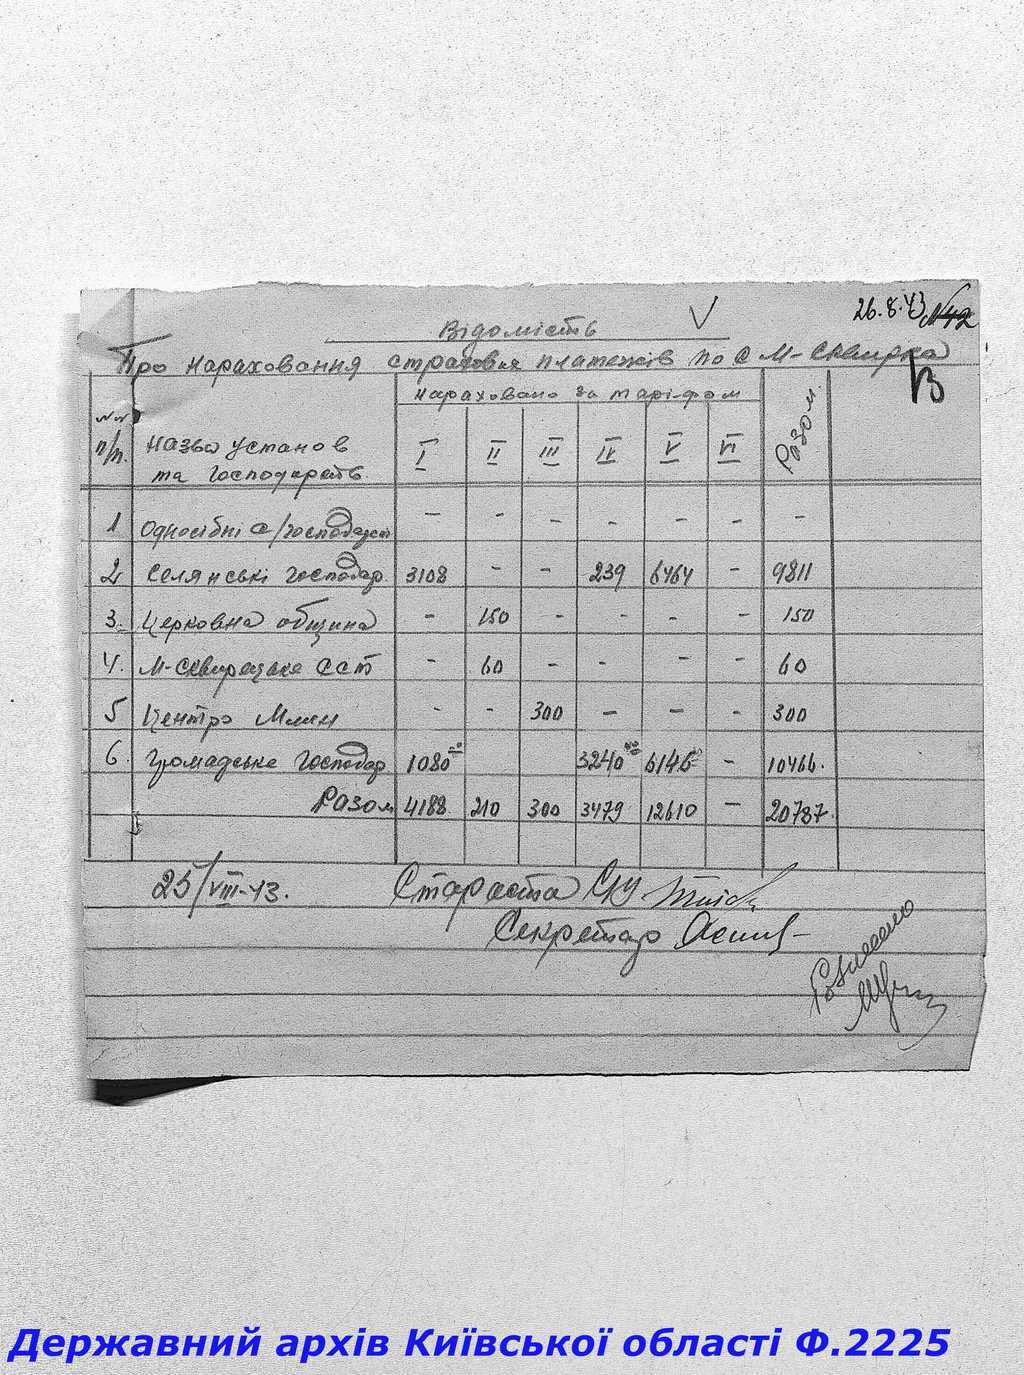 26.8.43
№42
Відомість V
Про нараховання страховия платежів по с М-Сквирка
В
№№ п/п. Назва установ та господарств. Нараховано за тарі-фом Разом.
I II III IV V VI
1 Одноосібні с/господарст - - - - - - -
2 Селянські господар. 3108 - - 239 6464 - 9811
3. Церковна община - 150 - - - - 150
4. М-Сквирецьке ССТ - 60 - - - - 60
5 Центро Млин - - 300 - - - 300
6. Громадське господар 1080 3240 6146 - 10466.
Разом 4188. 210 300 3479 12610 - 20787.
25/VIII-43. Староста С/У
Секретар
Розписано
Державний архів Київської області Ф.2225